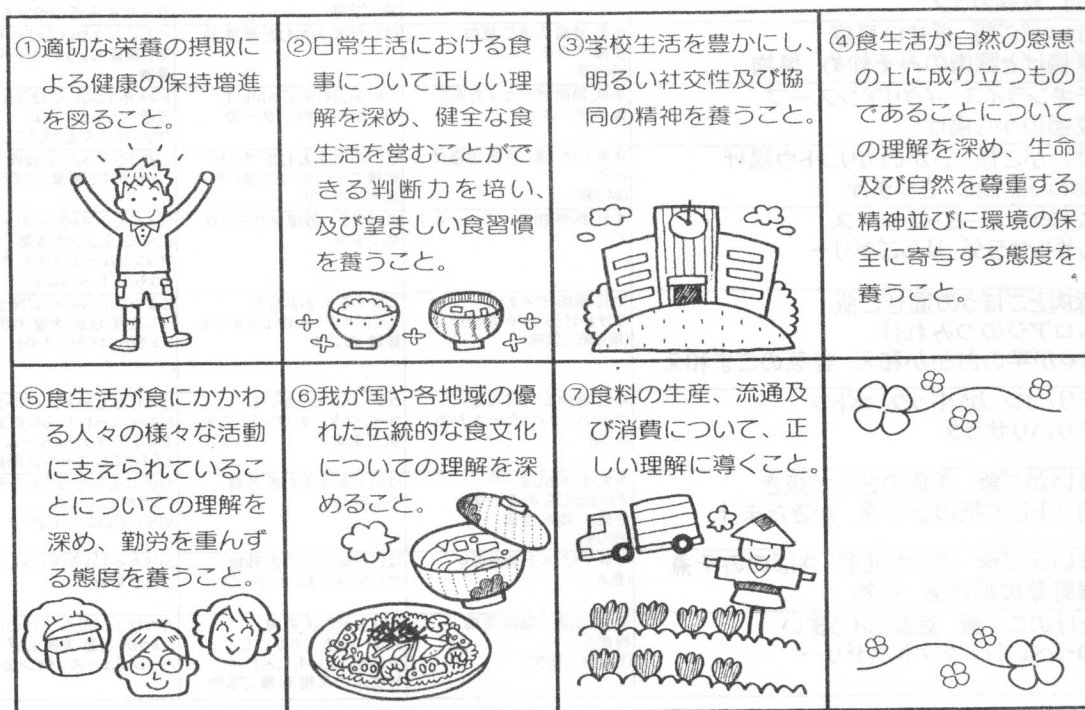 ①適切な栄養の摂取に
よる健康の保持増進
を図ること。
②日常生活における食
事について正しい理
解を深め、健全な食
生活を営むことがで
きる判断力を培い、
及び望ましい食習慣
を養うこと。
③学校生活を豊かにし、
明るい社交性及び協
同の精神を養うこと。
④食生活が自然の恩恵
の上に成り立つもの
であることについて
の理解を深め、生命
及び自然を尊重する
精神並びに環境の保
全に寄与する態度を
養うこと。
⑤食生活が食にかかわ
る人々の様々な活動
に支えられているこ
とについての理解を
深め、勤労を重んず
る態度を養うこと。
⑥我が国や各地域の優
れた伝統的な食文化
についての理解を深
めること。
⑦食料の生産、流通及
び消費について、正
しい理解に導くこと。